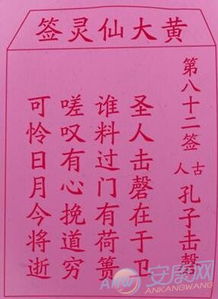 黄大仙灵签
第八十二签
古人 孔子击磬
圣人击磬在于卫
谁料过门有荷蒉
嗟叹有心挽道穷
可怜日月今将逝
安康网
ANKANGWANG